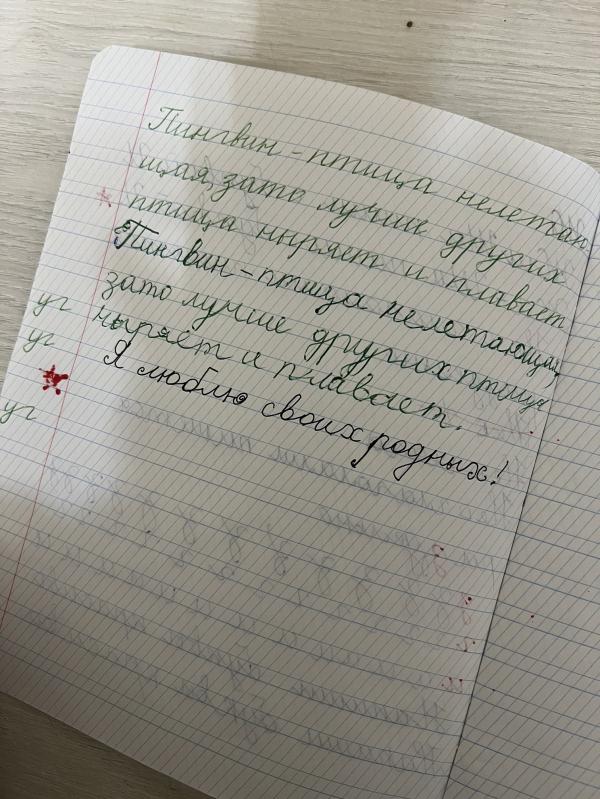 Пингвин - птица нелетаю
щая, зато лучше других
птица ныряет и плавает
Пингвин - птица нелетающая,
зато лучше других птицы
ныряет и плавает.
Я люблю своих родных!
уг
уг
уг